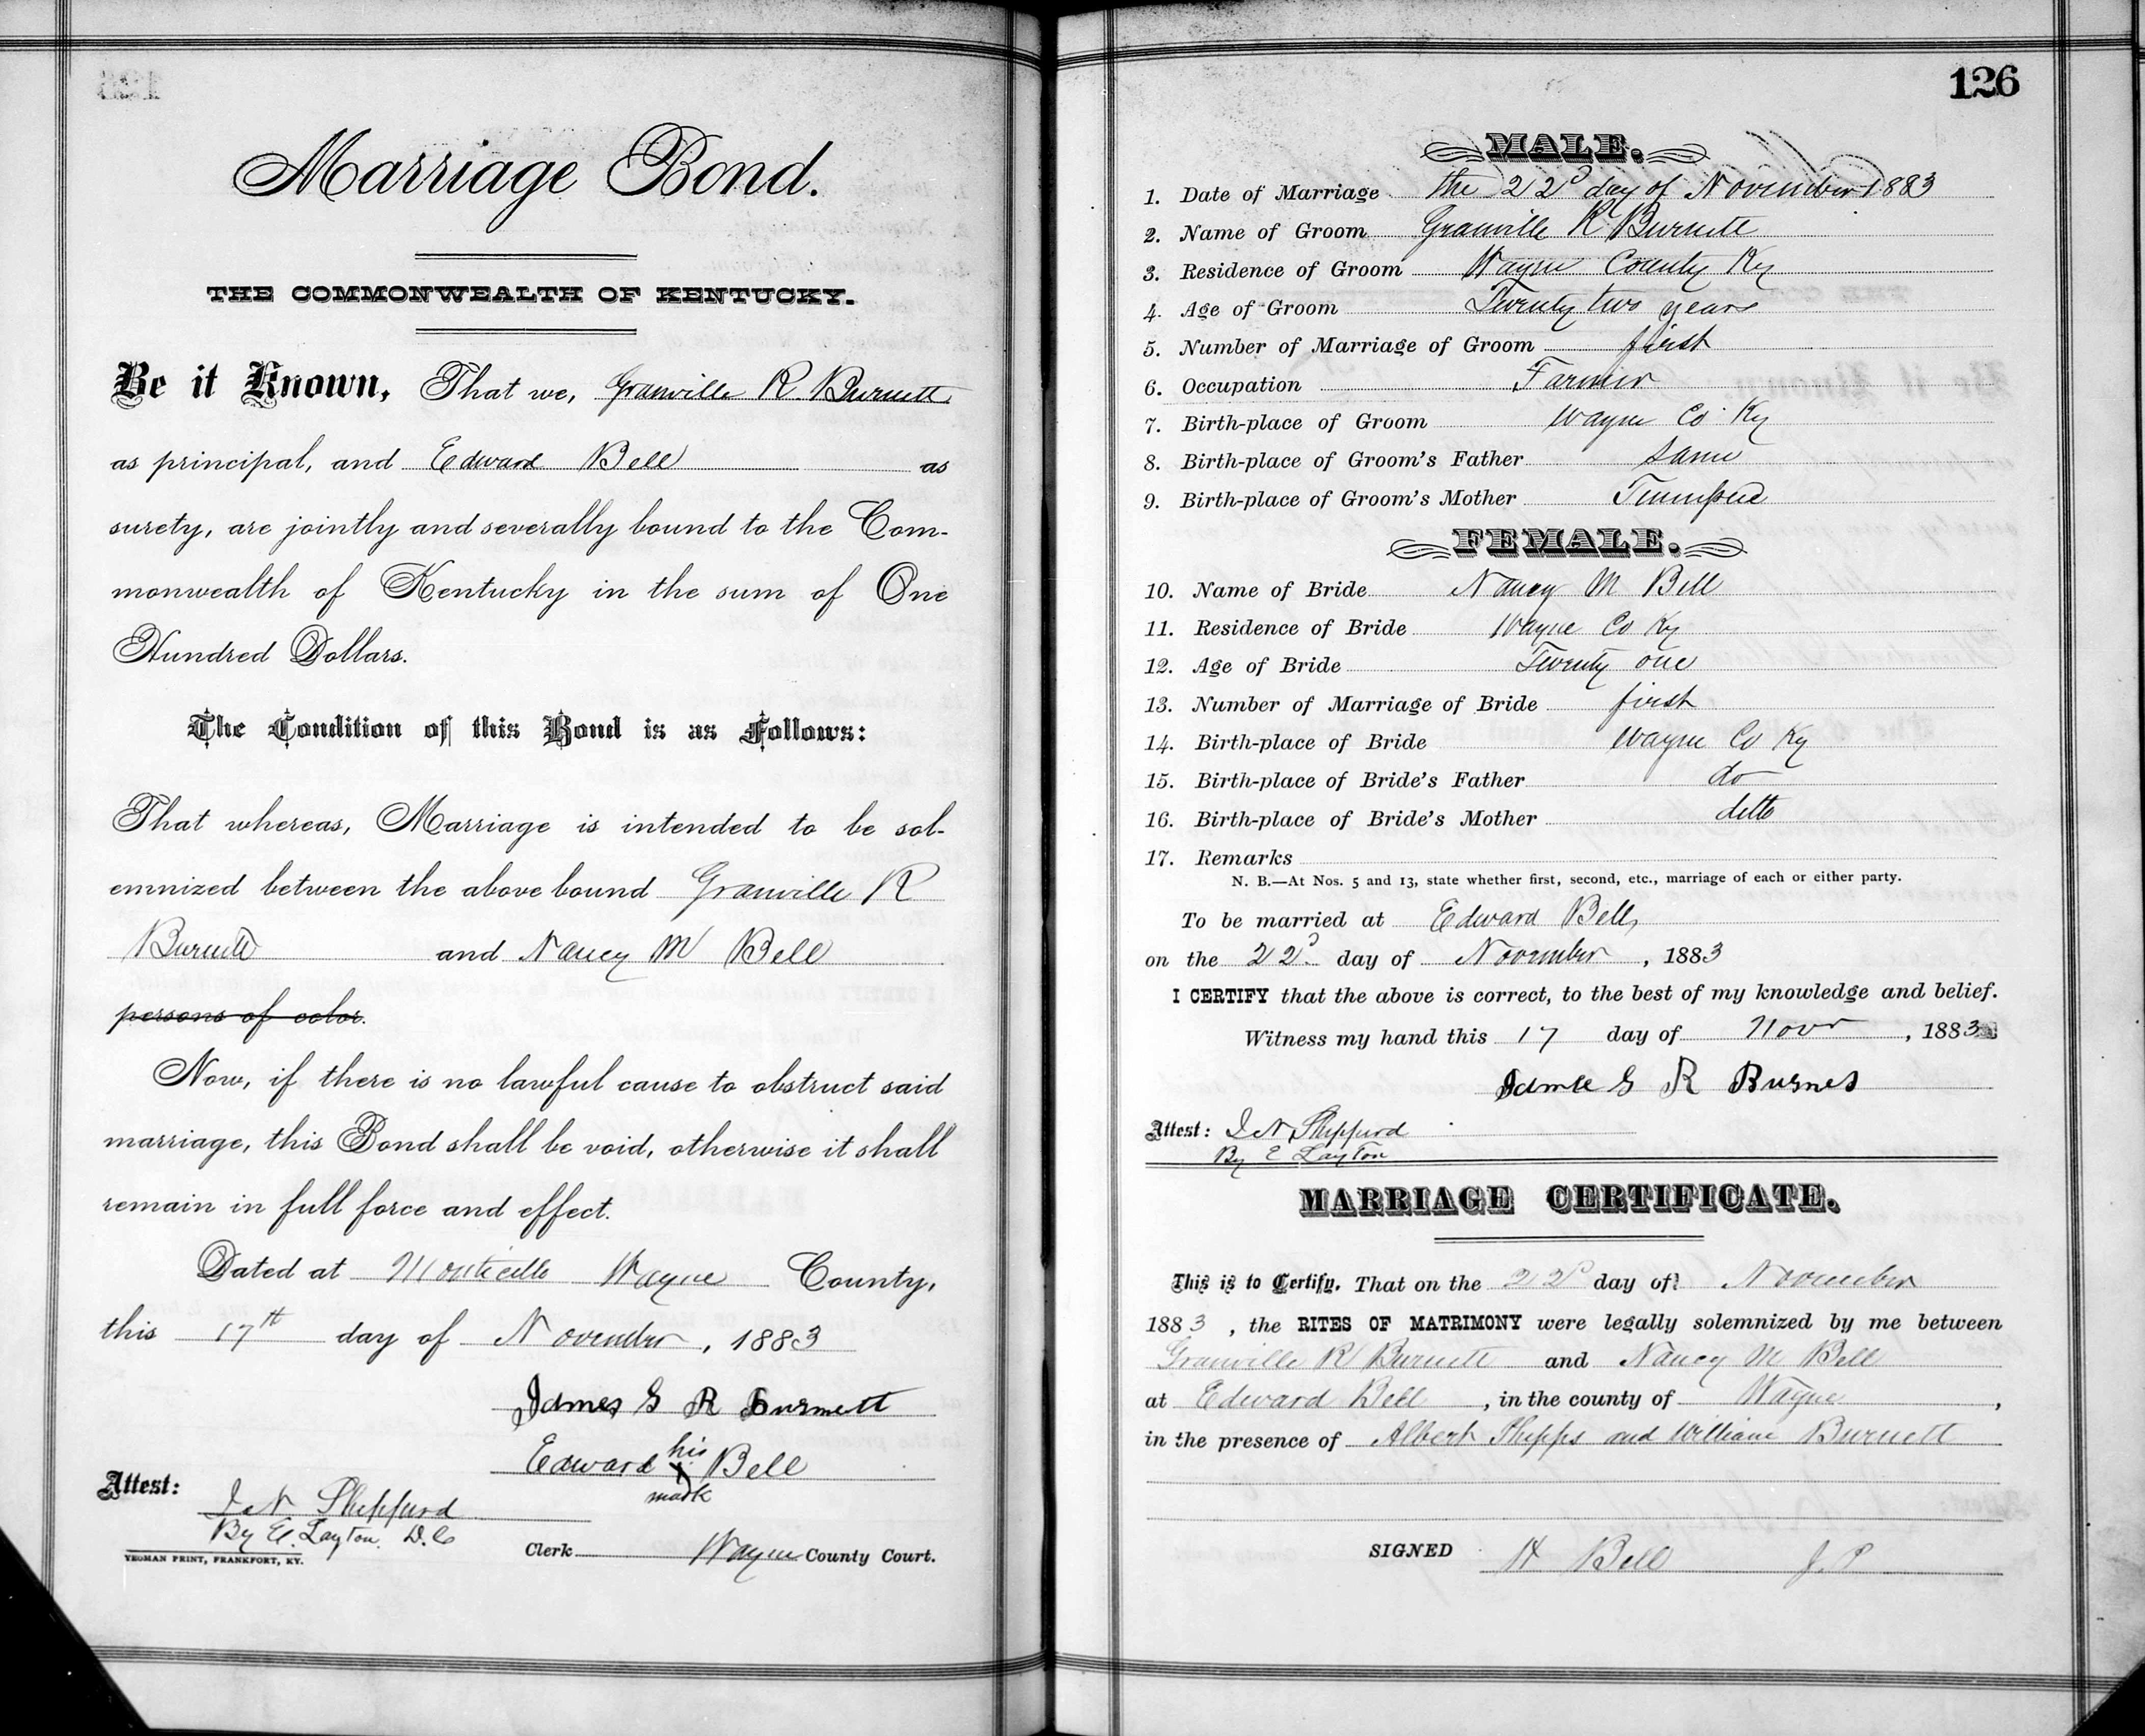 Marriage Bond.
THE COMMONWEALTH OF KENTUCKY.
Be it Known, That we, Granville R. Burnett
as principal, and Edward Bell as
surety, are jointly and severally bound to the Com-
monwealth of Kentucky in the sum of One
Hundred Dollars.
The Condition of this Bond is as Follows:
That whereas, Marriage is intended to be sol-
emnized between the above bound Granville R
Burnett and Nancy M Bell
persons of color.
Now, if there is no lawful cause to obstruct said
marriage, this Bond shall be void, otherwise it shall
remain in full force and effect.
Dated at Monticello Wayne County,
this 17th day of November, 1883
James G R Burnett
Edward his x mark Bell
Attest: Sheppard
By E. Layton. D.C
YEOMAN PRINT, FRANKFORT, KY.
Clerk Wayne County Court.
126
MALE.
1. Date of Marriage the 22d day of November 1883
2. Name of Groom Granville R Burnett
3. Residence of Groom Wayne County Ky
4. Age of Groom Twenty two years
5. Number of Marriage of Groom first
6. Occupation Farmer
7. Birth-place of Groom Wayne Co Ky
8. Birth-place of Groom's Father same
9. Birth-place of Groom's Mother Tennessee
FEMALE.
10. Name of Bride Nancy M Bell
11. Residence of Bride Wayne Co Ky
12. Age of Bride Twenty one
13. Number of Marriage of Bride first
14. Birth-place of Bride Wayne Co Ky
15. Birth-place of Bride's Father do
16. Birth-place of Bride's Mother ditto
17. Remarks
N. B.—At Nos. 5 and 13, state whether first, second, etc., marriage of each or either party.
To be married at Edward Bells
on the 22d day of November, 1883
I CERTIFY that the above is correct, to the best of my knowledge and belief.
Witness my hand this 17 day of Novr, 1883
G R Burnes
Attest: Sheppard
By E Layton
MARRIAGE CERTIFICATE.
This is to Certify, That on the 22d day of November
1883, the RITES OF MATRIMONY were legally solemnized by me between
Granville R Burnett and Nancy M Bell
at Edward Bell, in the county of Wayne,
in the presence of Albert Phipps and William Burnett
SIGNED H Bell J. P